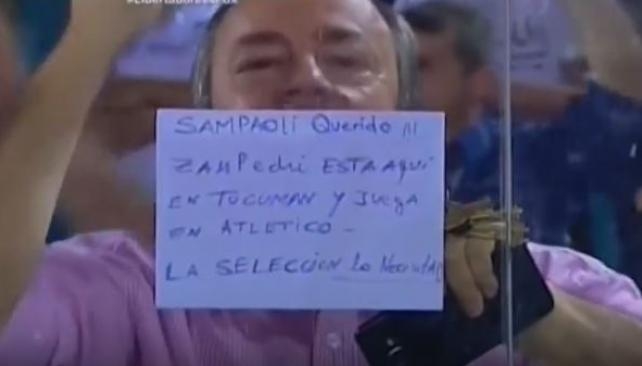 SAMPAOLI Querido !!!
ZAMPedri ESTA AQUI
EN TUCUMAN Y JUEGA
EN ATLETICO -
LA SELECCION Lo Necesita